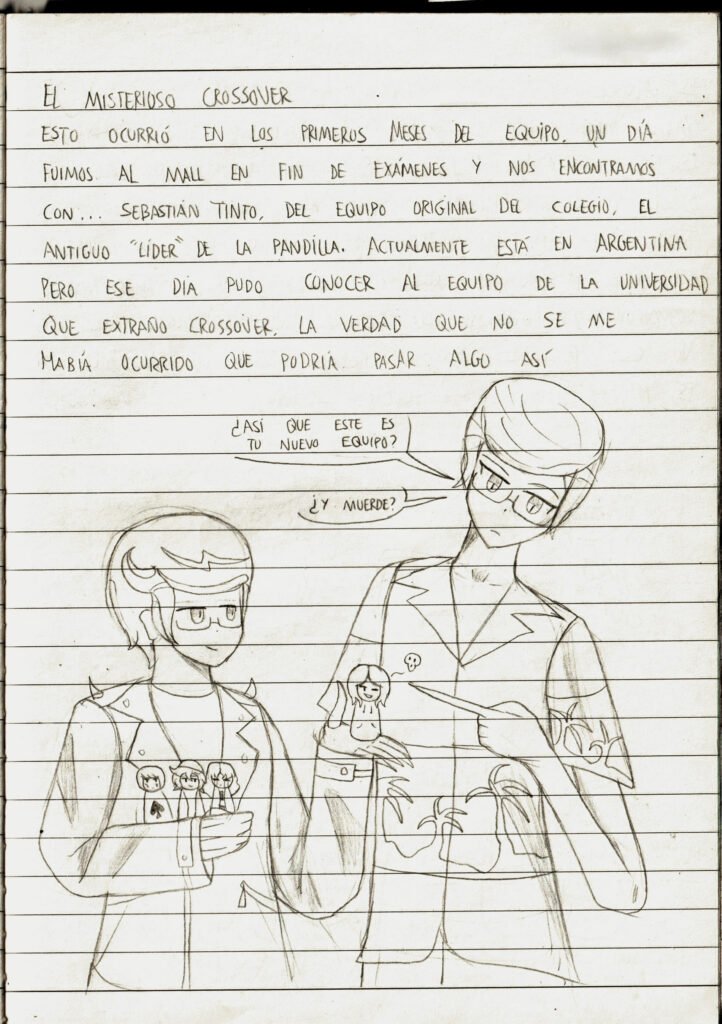 EL MISTERIOSO CROSSOVER
ESTO OCURRIÓ EN LOS PRIMEROS MESES DEL EQUIPO. UN DÍA
FUIMOS AL MALL EN FIN DE EXÁMENES Y NOS ENCONTRAMOS
CON... SEBASTIÁN TINTO, DEL EQUIPO ORIGINAL DEL COLEGIO, EL
ANTIGUO "LÍDER" DE LA PANDILLA. ACTUALMENTE ESTÁ EN ARGENTINA
PERO ESE DÍA PUDO CONOCER AL EQUIPO DE LA UNIVERSIDAD
QUE EXTRAÑO CROSSOVER, LA VERDAD QUE NO SE ME
HABÍA OCURRIDO QUE PODRÍA PASAR ALGO ASÍ
¿ASÍ QUE ESTE ES
TU NUEVO EQUIPO?
¿Y MUERDE?